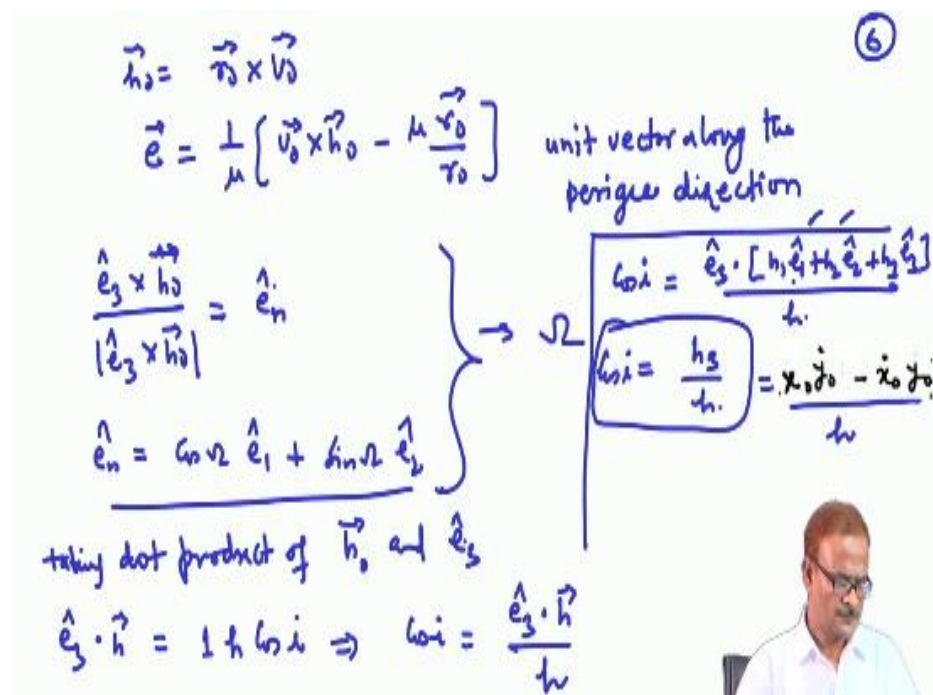 6
h⃗₀ = r⃗₀ × v⃗₀
e⃗ = 1/μ [ v⃗₀ × h⃗₀ − μ r⃗₀/r₀ ]
unit vector along the
perigee direction
ê₃ × h⃗₀ / |ê₃ × h⃗₀| = ê_n
ê_n = Cos Ω ê₁ + Sin Ω ê₂
→ Ω
Cos i = ê₃ · [h₁ê₁ + h₂ê₂ + h₃ê₃] / h
Cos i = h₃/h = x₀ẏ₀ − ẋ₀y₀ / h
taking dot product of h⃗₀ and ê₃
ê₃ · h⃗ = 1 h Cos i ⇒ Cos i = ê₃ · h⃗ / h